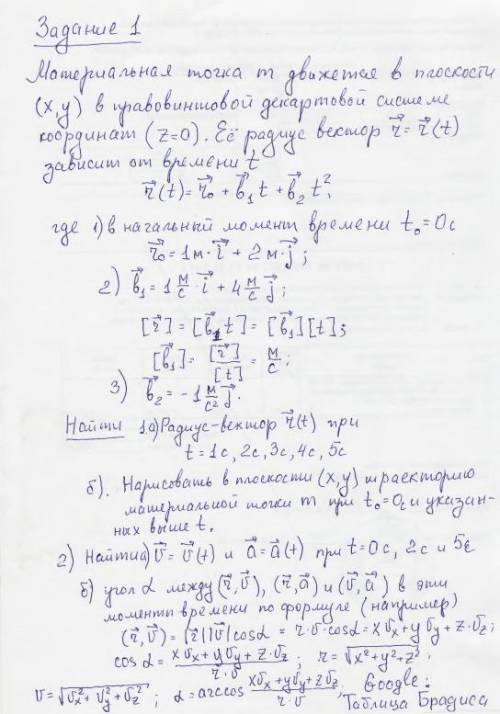 Задание 1
Материальная точка m движется в плоскости
(x,y) в правовинтовой декартовой системе
координат (z=0). Её радиус вектор r⃗ = r⃗(t)
зависит от времени t
r⃗(t) = r⃗₀ + b⃗₁t + b⃗₂t²,
где 1) в начальный момент времени t₀ = 0с
r⃗₀ = 1м·i⃗ + 2м·j⃗;
2) b⃗₁ = 1 м/с · i⃗ + 4 м/с j⃗;
[r⃗] = [b⃗₁t] = [b⃗₁][t];
[b⃗₁] = [r⃗]/[t] = м/с;
3) b⃗₂ = -1 м/с² j⃗.
Найти 1а) Радиус-вектор r⃗(t) при
t = 1с, 2с, 3с, 4с, 5с
б). Нарисовать в плоскости (x,y) траекторию
материальной точки m при t₀ = 0с и указан-
ных выше t.
2) Найти а) v⃗ = v⃗(t) и a⃗ = a⃗(t) при t = 0с, 2с и 5с
б) угол α между (r⃗,v⃗), (r⃗,a⃗) и (v⃗,a⃗) в эти
моменты времени по формуле (например)
(r⃗,v⃗) = |r⃗||v⃗|cosα = r·v·cosα = xvₓ + yvᵧ + z·v_z;
cosα = (xvₓ + yvᵧ + z·v_z)/(r·v); r = √(x² + y² + z²);
v = √(vₓ² + vᵧ² + v_z²); α = arccos (xvₓ + yvᵧ + zv_z)/(r·v), Google:
Таблица Брадиса